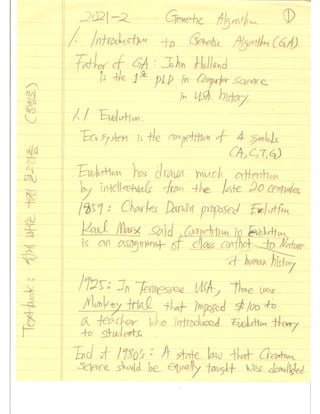 2021-2 Genetic Algorithm ①
1. Introduction to Genetic Algorithm (GA)
Father of GA : John Holland
is the 1st PhD in Computer science
in USA history.
1.1 Evolution
Eco system is the competition of 4 symbols
(A, C, T, G)
Evolution has drawn much attention
by intellectuals from the late 20 centuries
1859 : Charles Darwin proposed Evolution
Karl Marx said Competition in Evolution
is an assignment of class conflict to Nature
of human history
1925 : In Tennessee USA, There was
Monkey trial that imposed $100 to
a teacher who introduced Evolution theory
to students.
End of 1980's : A state law that Creation
science should be equally taught was demolished
Textbook : 쉽게 배우는 유전 알고리즘 (문병로)